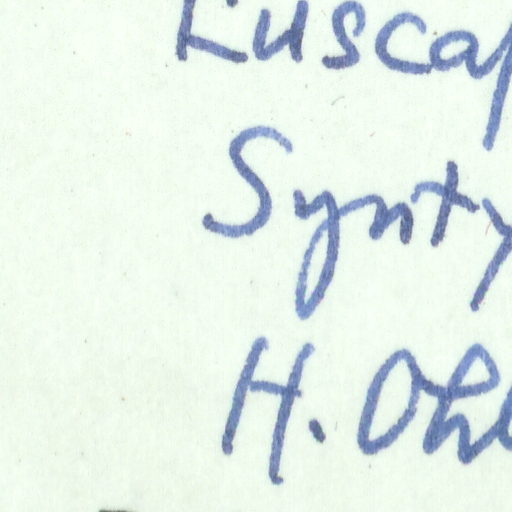 Euscap
Synty
H. Ohl